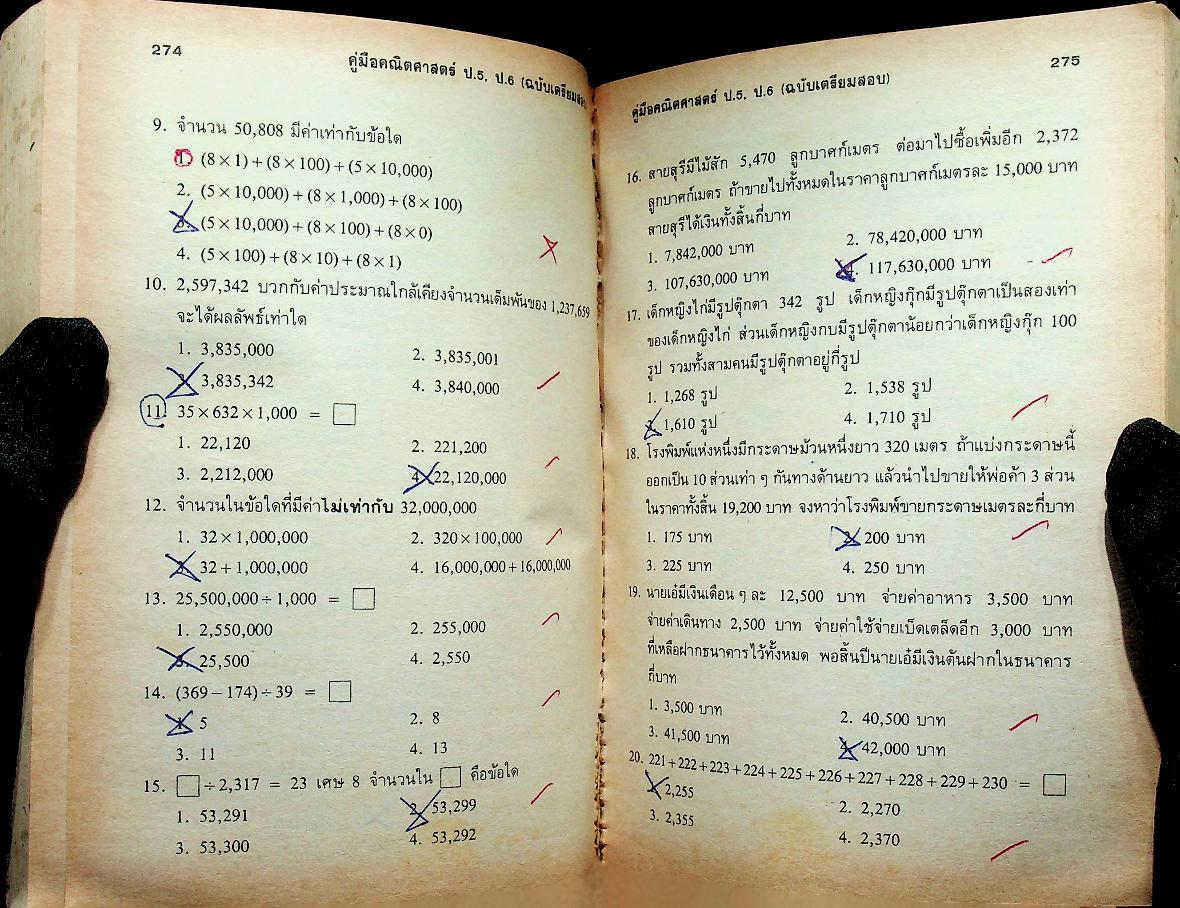 274
คู่มือคณิตศาสตร์ ป.5, ป.6 (ฉบับเตรียมสอบ
9. จำนวน 50,808 มีค่าเท่ากับข้อใด
1. (8 × 1) + (8 × 100) + (5 × 10,000)
2. (5 × 10,000) + (8 × 1,000) + (8 × 100)
3. (5 × 10,000) + (8 × 100) + (8 × 0)
4. (5 × 100) + (8 × 10) + (8 × 1)
10. 2,597,342 บวกกับค่าประมาณใกล้เคียงจำนวนเต็มพันของ 1,237,659
จะได้ผลลัพธ์เท่าใด
1. 3,835,000 2. 3,835,001
3. 3,835,342 4. 3,840,000
11. 35 × 632 × 1,000 = □
1. 22,120 2. 221,200
3. 2,212,000 4. 22,120,000
12. จำนวนในข้อใดที่มีค่าไม่เท่ากับ 32,000,000
1. 32 × 1,000,000 2. 320 × 100,000
3. 32 + 1,000,000 4. 16,000,000 + 16,000,000
13. 25,500,000 ÷ 1,000 = □
1. 2,550,000 2. 255,000
3. 25,500 4. 2,550
14. (369 – 174) ÷ 39 = □
1. 5 2. 8
3. 11 4. 13
15. □ ÷ 2,317 = 23 เศษ 8 จำนวนใน □ คือข้อใด
1. 53,291 2. 53,299
3. 53,300 4. 53,292
275
คู่มือคณิตศาสตร์ ป.5, ป.6 (ฉบับเตรียมสอบ)
16. สายสุรีมีไม้สัก 5,470 ลูกบาศก์เมตร ต่อมาไปซื้อเพิ่มอีก 2,372
ลูกบาศก์เมตร ถ้าขายไปทั้งหมดในราคาลูกบาศก์เมตรละ 15,000 บาท
สายสุรีได้เงินทั้งสิ้นกี่บาท
1. 7,842,000 บาท 2. 78,420,000 บาท
3. 107,630,000 บาท 4. 117,630,000 บาท
17. เด็กหญิงไก่มีรูปตุ๊กตา 342 รูป เด็กหญิงกุ๊กมีรูปตุ๊กตาเป็นสองเท่า
ของเด็กหญิงไก่ ส่วนเด็กหญิงกบมีรูปตุ๊กตาน้อยกว่าเด็กหญิงกุ๊ก 100
รูป รวมทั้งสามคนมีรูปตุ๊กตาอยู่กี่รูป
1. 1,268 รูป 2. 1,538 รูป
3. 1,610 รูป 4. 1,710 รูป
18. โรงพิมพ์แห่งหนึ่งมีกระดาษม้วนหนึ่งยาว 320 เมตร ถ้าแบ่งกระดาษนี้
ออกเป็น 10 ส่วนเท่า ๆ กันทางด้านยาว แล้วนำไปขายให้พ่อค้า 3 ส่วน
ในราคาทั้งสิ้น 19,200 บาท จงหาว่าโรงพิมพ์ขายกระดาษเมตรละกี่บาท
1. 175 บาท 2. 200 บาท
3. 225 บาท 4. 250 บาท
19. นายเอ๋มีเงินเดือน ๆ ละ 12,500 บาท จ่ายค่าอาหาร 3,500 บาท
จ่ายค่าเดินทาง 2,500 บาท จ่ายค่าใช้จ่ายเบ็ดเตล็ดอีก 3,000 บาท
ที่เหลือฝากธนาคารไว้ทั้งหมด พอสิ้นปีนายเอ๋มีเงินต้นฝากในธนาคาร
กี่บาท
1. 3,500 บาท 2. 40,500 บาท
3. 41,500 บาท 4. 42,000 บาท
20. 221 + 222 + 223 + 224 + 225 + 226 + 227 + 228 + 229 + 230 = □
1. 2,255 2. 2,270
3. 2,355 4. 2,370